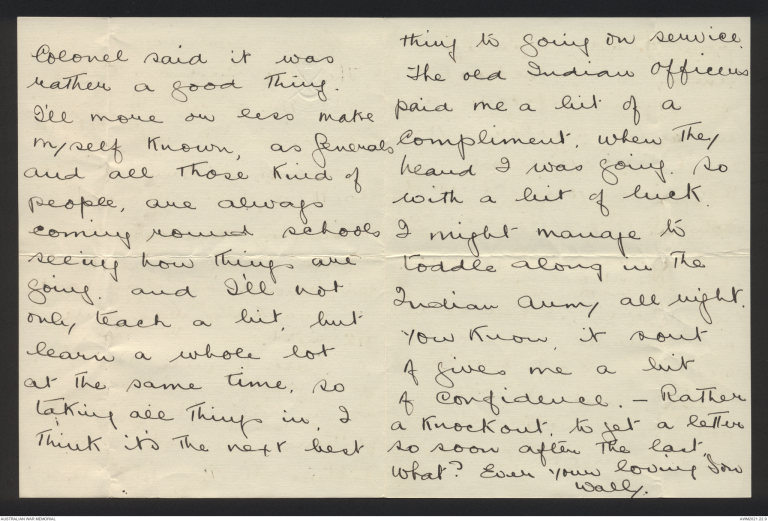 Colonel said it was
rather a good thing.
I'll more or less make
myself known, as Generals
and all those kind of
people, are always
coming round schools
seeing how things are
going. and I'll not
only teach a bit, but
learn a whole lot
at the same time, so
taking all things in, I
think it's the next best
thing to going on service.
The old Indian Officers
paid me a bit of a
compliment, when they
heard I was going. So
with a bit of luck.
I might manage to
toddle along in the
Indian Army all right.
You know, it sort
of gives me a bit
of confidence. — Rather
a knockout, to get a letter
so soon after the last,
what? Ever your loving Son
Wally.
AUSTRALIAN WAR MEMORIAL